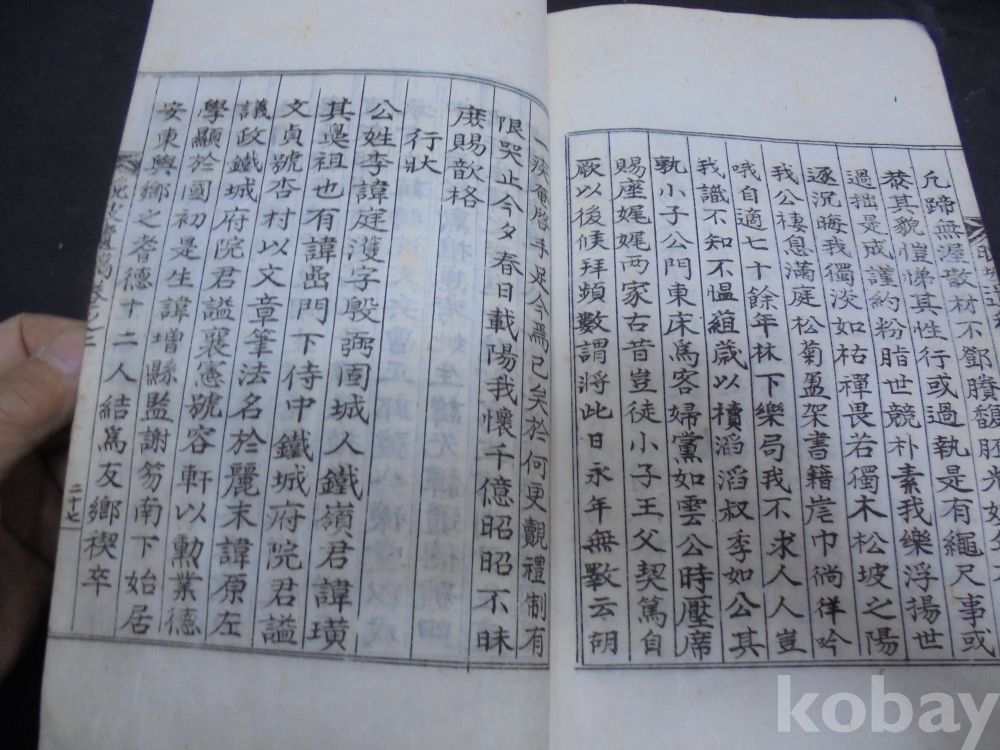 凡蹄無渥散材不鄧賸馥胚光
恭其貌愷悌其性行或過執是有繩尺事或
過拙是戒謹約粉脂世競朴素我樂浮揚世
逐沉晦我獨淡如枯禪畏若獨木松坡之陽
我公棲息滿庭松菊盈架書籍岸巾徜徉吟
哦自適七十餘年林下樂局我不求人人豈
我識不知不慍蘊歲以櫝滔滔叔季如公其
孰小子公門東床爲客婦黨如雲公時壓席
賜座娓娓兩家古昔豈徒小子王父契篤自
厥以後候拜頻數謂將此日永年無斁云胡
一疾奄啓手足今焉已矣於何更覿禮制有
限哭止今夕春日載陽我懷千億昭昭不昧
庶賜歆格
行狀
公姓李諱庭濩字殷弼固城人鐵嶺君諱璜
其鼻祖也有諱嵒門下侍中鐵城府院君諡
文貞號杏村以文章筆法名於麗末諱原左
議政鐵城府院君諡襄憲號容軒以勳業德
學顯於國初是生諱增縣監謝笏南下始居
安東與鄉之耆德十二人結爲友鄉禊卒
卷之二
二十七
kobay